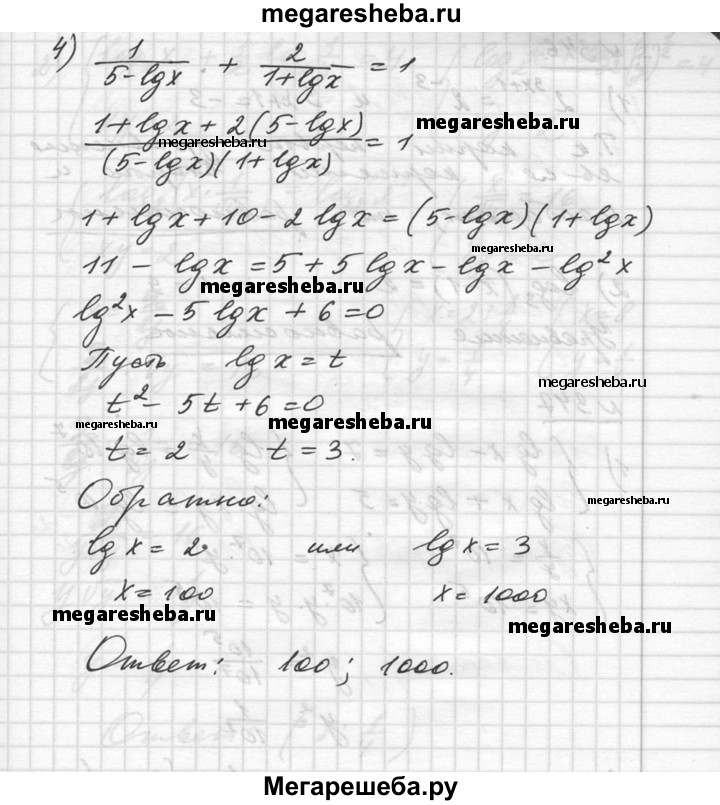 megaresheba.ru
4) 1/(5-lgx) + 2/(1+lgx) = 1
(1+lgx+2(5-lgx))/((5-lgx)(1+lgx)) = 1
megaresheba.ru
megaresheba.ru
1+lgx+10-2lgx=(5-lgx)(1+lgx)
megaresheba.ru
11-lgx=5+5lgx-lgx-lg²x
megaresheba.ru
lg²x-5lgx+6=0
Пусть lgx=t
megaresheba.ru
t²-5t+6=0
megaresheba.ru
megaresheba.ru
t=2 t=3.
Обратно:
megaresheba.ru
lgx=2 или lgx=3
x=100 x=1000
megaresheba.ru
megaresheba.ru
Ответ: 100; 1000.
Мегарешеба.ру